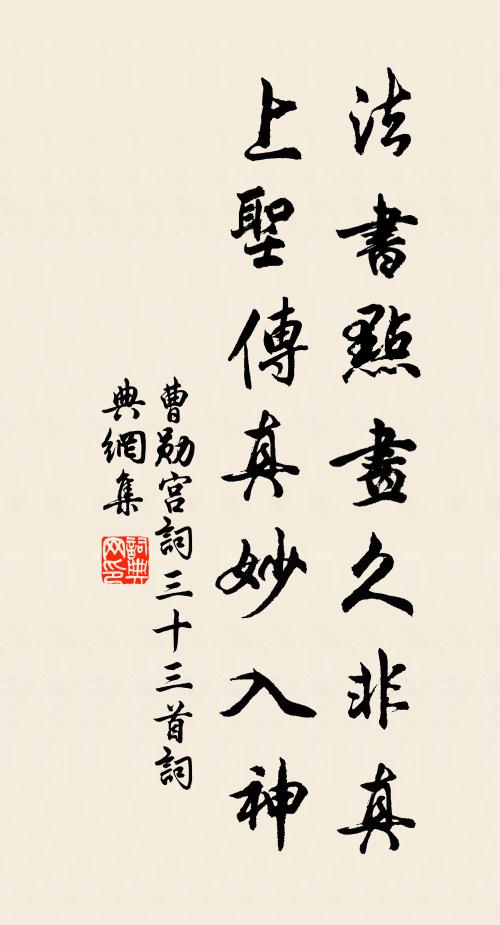 法書點畫久非真
上聖傳真妙入神
曹勛宮詞三十三首詞
典網集
詞典网印